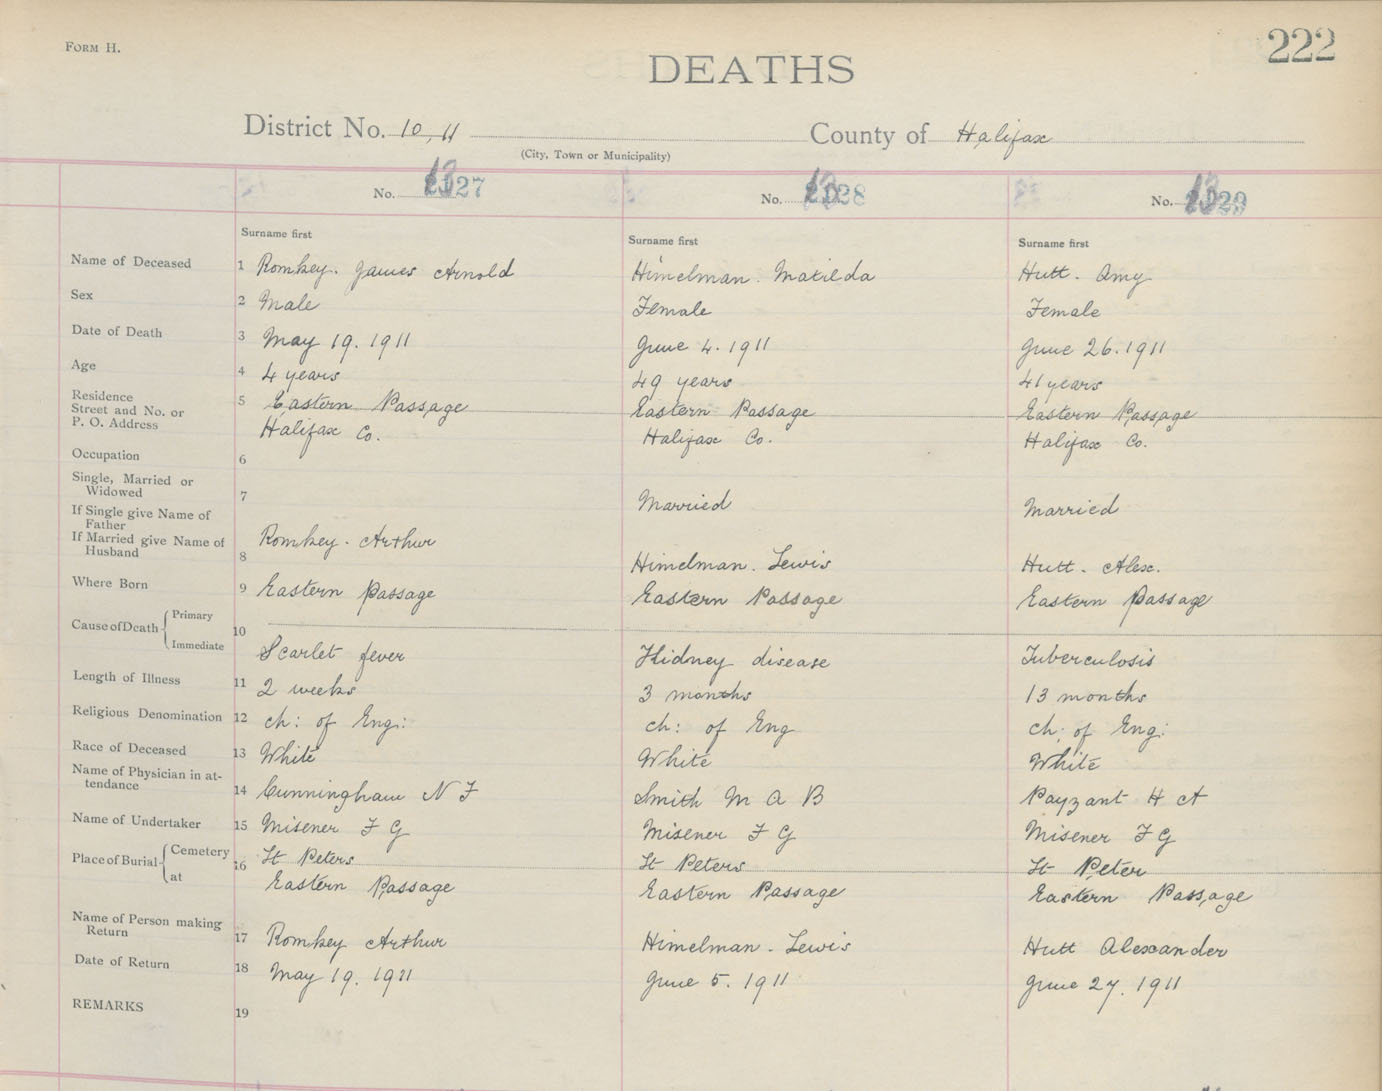 FORM H.
222
DEATHS
District No. 10, 11
County of Halifax
(City, Town or Municipality)
No.
No.
No.
Surname first
Surname first
Surname first
Name of Deceased 1 Romkey. James Arnold
Himelman. Matilda
Hutt. Amy
Sex 2 Male
Female
Female
Date of Death 3 May 19. 1911
June 4. 1911
June 26. 1911
Age 4 4 years
49 years
41 years
Residence
Street and No. or
P. O. Address
5 Eastern Passage
Halifax Co.
Eastern Passage
Halifax Co.
Eastern Passage
Halifax Co.
Occupation 6
Single, Married or
Widowed
7
Married
Married
If Single give Name of
Father
If Married give Name of
Husband
8
Romkey. Arthur
Himelman. Lewis
Hutt. Alex.
Where Born 9 Eastern Passage
Eastern Passage
Eastern Passage
Cause of Death { Primary
Immediate
10
Scarlet fever
Kidney disease
Tuberculosis
Length of Illness 11 2 weeks
3 months
13 months
Religious Denomination 12 ch: of Eng:
ch: of Eng
ch: of Eng:
Race of Deceased 13 White
White
White
Name of Physician in at-
tendance
14 Cunningham N F
Smith M A B
Payzant H A
Name of Undertaker 15 Misener F G
Misener F G
Misener F G
Place of Burial { Cemetery
at
16
St Peters
Eastern Passage
St Peters
Eastern Passage
St Peter
Eastern Passage
Name of Person making
Return
17 Romkey Arthur
Himelman. Lewis
Hutt Alexander
Date of Return 18 May 19. 1911
June 5. 1911
June 27. 1911
REMARKS 19